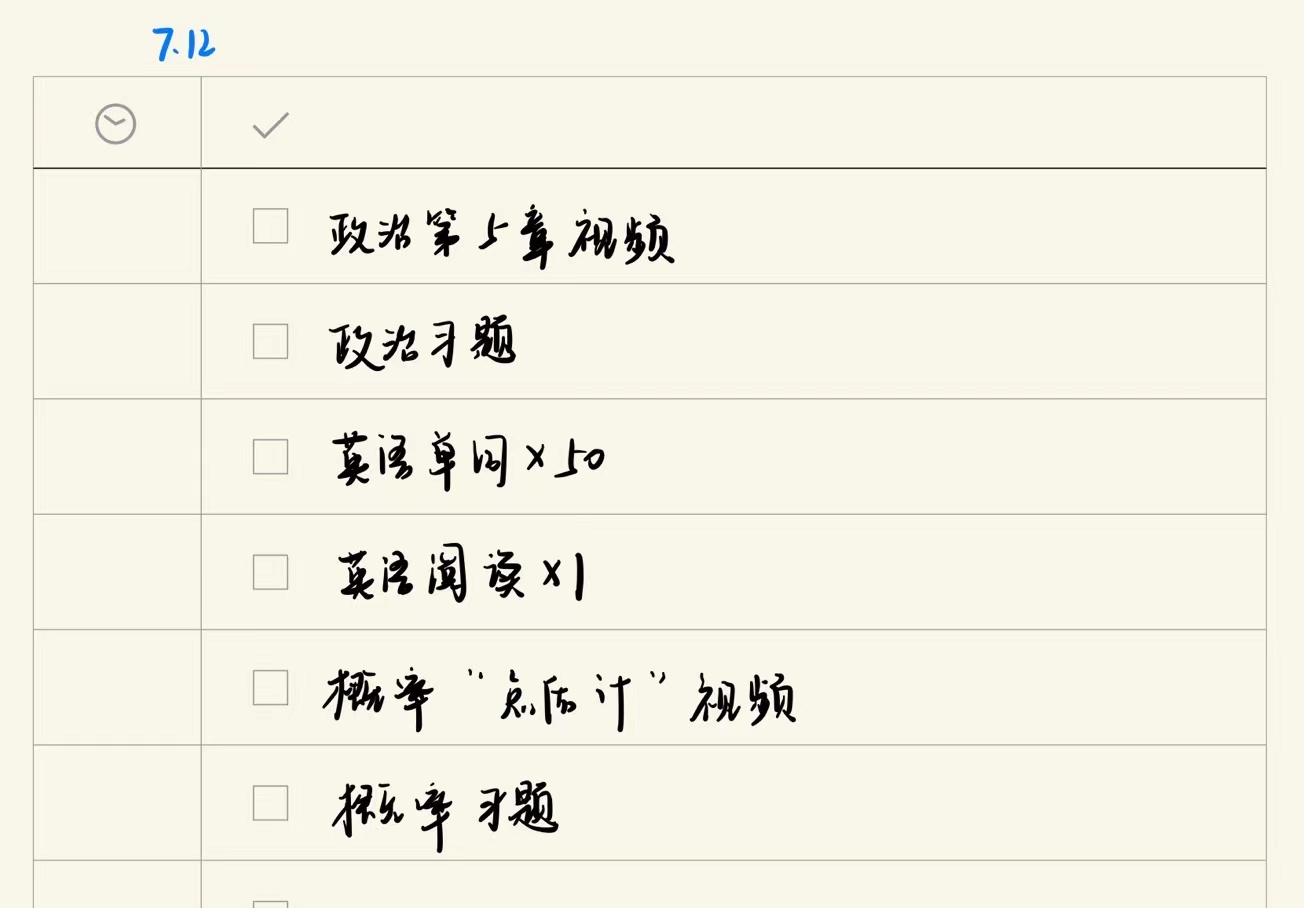 7.12
政治第5章视频
政治习题
英语单词×50
英语阅读×1
概率“点估计”视频
概率习题